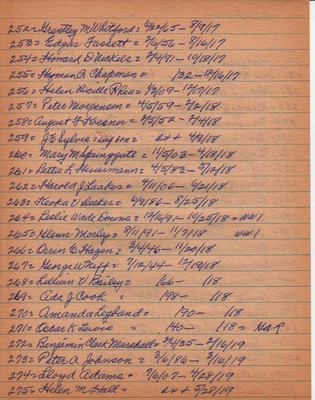 252= Grantley M Whitford= 4/22/65 - 8/9/17
253= Edgar Fassett = 7/6/56 - 9/16/17
254= Howard D Nickels= 2/4/91 - 10/18/17
255= Hyman A Chapman= /32 - 12/16/17
256= Helen Lucille = 1/2/09 - 12/9/17
257= Peter Morgenson= 4/5/59 - 2/2/18
258= August F = 2/5/52 - 2/4/18
259= J E Sylvis = 4/2/18
260= Mary M Springgate= 11/5/03 - 4/18/18
261= Bettie L = 4/5/83 - 5/12/18
262= Harold J Laaker= 4/11/06 - 6/21/18
263= V Laaker= 4/7/86 - 8/25/18
264= Leslie Wade Downs= 12/6/91 - 10/25/18= WW1
265= Glenn Morley= 9/11/91 - 11/7/18 WW1
266= Orrin E Hagen= 3/4/46 - 11/20/18
267= George W Neff= 7/12/44 - 12/19/18
268= Lillian V Briley= 166 - 118
269= Ada J Cook = 198 - 118
270= Amanda Legband= 190 - 118
271= Oscar K Lewis = 140 - 118= GAR
272= Benjamin Clark Marshall= 3/4/35 - 2/16/19
273= Peter A Johnson= 3/6/86 - 3/16/19
274= Lloyd Adams= 7/6/07 - 4/28/19
275= Helen M Hall= 5/28/19